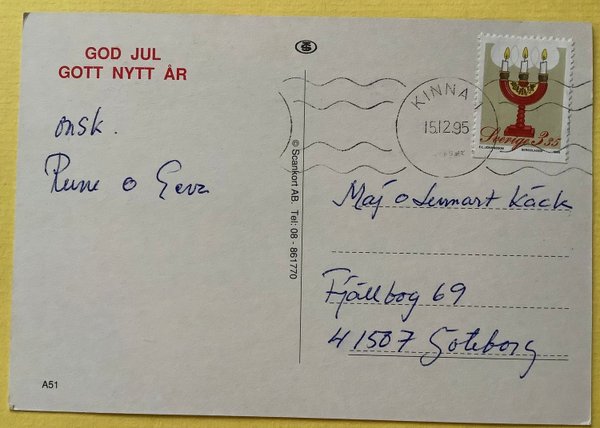 GOD JUL
GOTT NYTT ÅR
önsk.
Rune o
A51
© Scankort AB. Tel: 08 - 861770
KINNA
15.12.95
Sverige 3.35
Maj o Lennart Käck
Fjällbog 69
41507 Göteborg